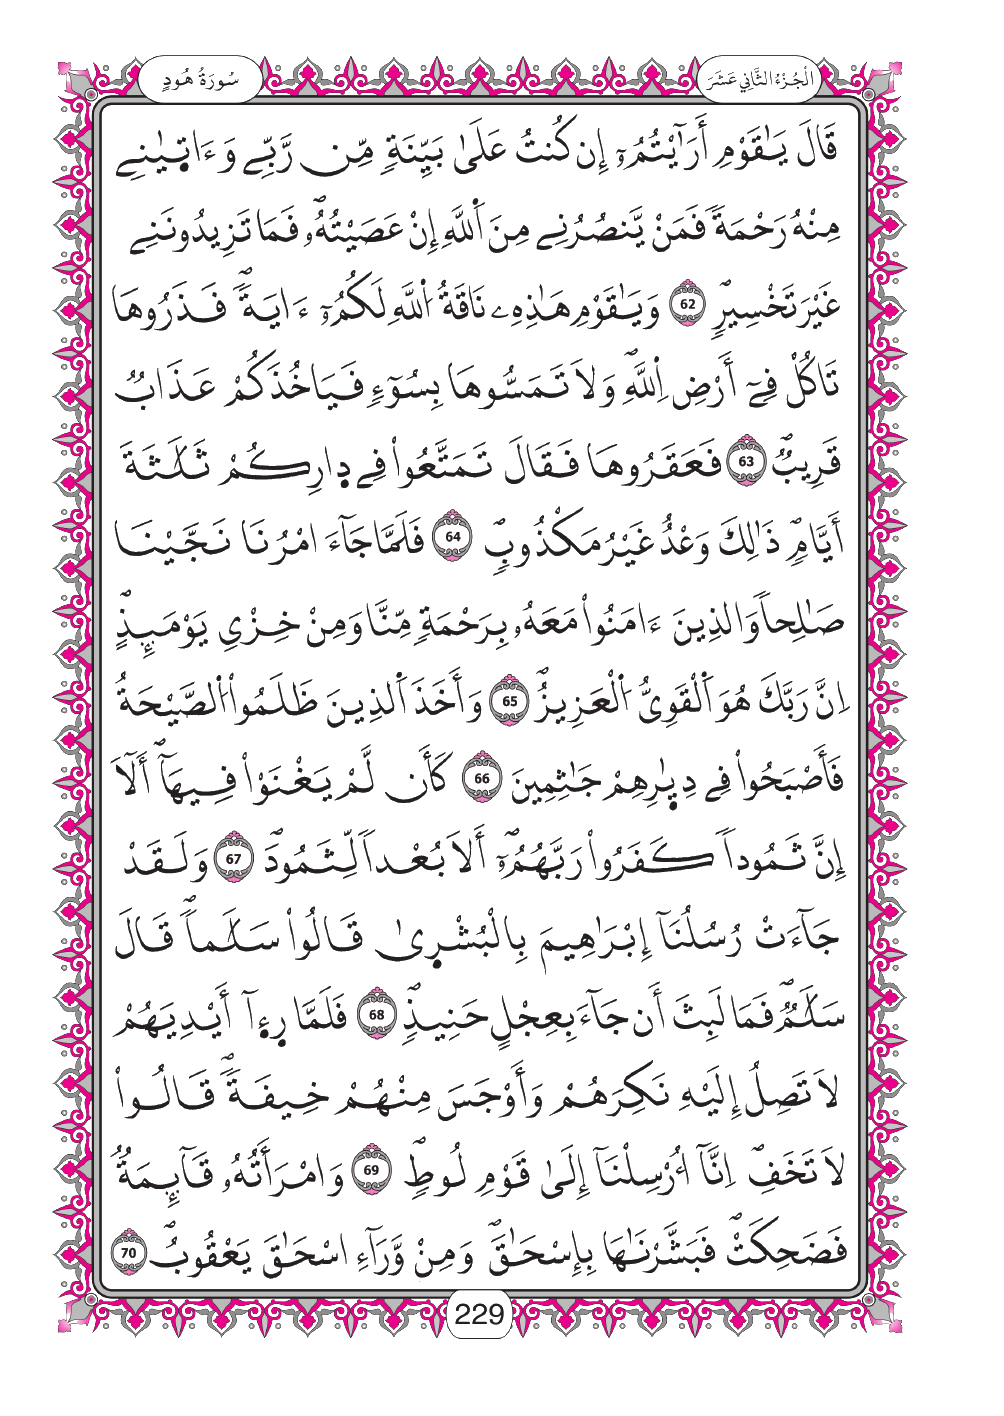 الْجُزْءُ الثَّانِي عَشَرَ
سُورَةُ هُودٍ
قَالَ يَٰقَوْمِ أَرَٰٓيْتُمُۥٓ إِن كُنتُ عَلَىٰ بَيِّنَةٍ مِّن رَّبِّے وَءَاتٜيٰنِے
مِنْهُ رَحْمَةً فَمَنْ يَّنصُرُنِے مِنَ اَ۬للَّهِ إِنْ عَصَيْتُهُۥۖ فَمَا تَزِيدُونَنِے
غَيْرَ تَخْسِيرٍۖ 62 وَيَٰقَوْمِ هَٰذِهِۦ نَاقَةُ اُ۬للَّهِ لَكُمُۥٓ ءَايَةٗۖ فَذَرُوهَا
تَاكُلْ فِےٓ أَرْضِ اِ۬للَّهِۖ وَلَا تَمَسُّوهَا بِسُوٓءٖ فَيَاخُذَكُمْ عَذَابٞ
قَرِيبٞۖ 63 فَعَقَرُوهَا فَقَالَ تَمَتَّعُواْ فِے دٜارِكُمْ ثَلَٰثَةَ
أَيَّامٖۖ ذَٰلِكَ وَعْدٌ غَيْرُ مَكْذُوبٖۖ 64 فَلَمَّا جَآءَ امْرُنَا نَجَّيْنَا
صَٰلِحاٗ وَالذِينَ ءَامَنُواْ مَعَهُۥ بِرَحْمَةٖ مِّنَّا وَمِنْ خِزْيِ يَوْمَئِذٍۖ
اِنَّ رَبَّكَ هُوَ اَ۬لْقَوِيُّ اُ۬لْعَزِيزُۖ 65 وَأَخَذَ اَ۬لذِينَ ظَلَمُواْ اُ۬لصَّيْحَةُ
فَأَصْبَحُواْ فِے دِيٜارِهِمْ جَٰثِمِينَ 66 كَأَن لَّمْ يَغْنَوْاْ فِيهَآۖ أَلَآ
إِنَّ ثَمُوداٗ كَفَرُواْ رَبَّهُمُۥٓۖ أَلَا بُعْداٗ لِّثَمُودَۖ 67 وَلَقَدْ
جَآءَتْ رُسُلُنَآ إِبْرَٰهِيمَ بِالْبُشْر۪يٰ قَالُواْ سَلَٰماٗۖ قَالَ
سَلَٰمٞۖ فَمَا لَبِثَ أَن جَآءَ بِعِجْلٍ حَنِيذٖۖ 68 فَلَمَّا رٜء۪آ أَيْدِيَهُمْ
لَا تَصِلُ إِلَيْهِ نَكِرَهُمْ وَأَوْجَسَ مِنْهُمْ خِيفَةٗۖ قَالُواْ
لَا تَخَفِۖ اِنَّآ أُرْسِلْنَآ إِلَىٰ قَوْمِ لُوطٖۖ 69 وَامْرَأَتُهُۥ قَآئِمَةٞ
فَضَحِكَتْۖ فَبَشَّرْنَٰهَا بِإِسْحَٰقَۖ وَمِنْ وَّرَآءِ اسْحَٰقَ يَعْقُوبُۖ 70
229